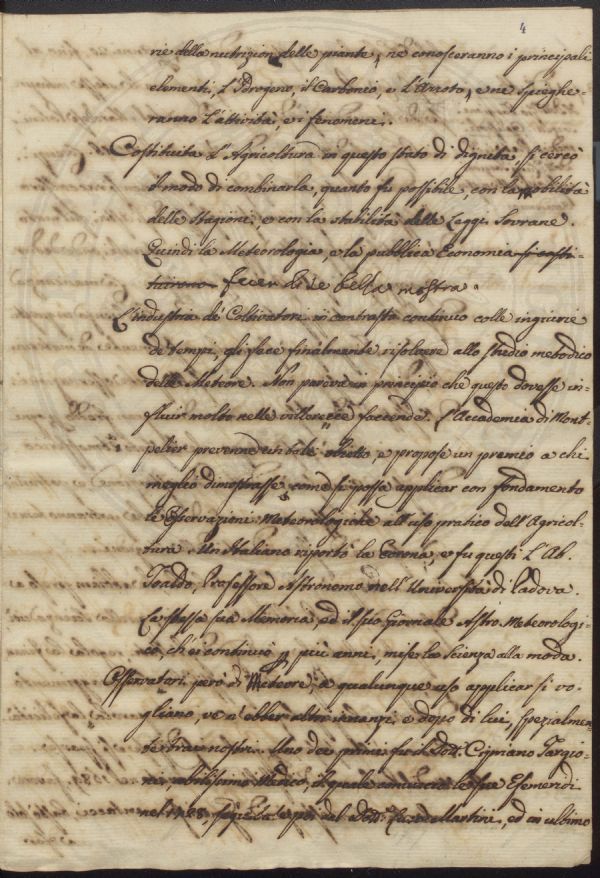 4
rie della nutrizion delle piante, ne conosceranno i principali
elementi, l'Idrogeno, il Carbonio, e l'Azoto, e ne spieghe-
ranno l'attività, e i fenomeni.
Costituita l'Agricoltura in questo stato di dignità, si cercò
il modo di combinarla, quanto fu possibile, con la mobilità
delle Stagioni, e con la stabilità delle Leggi Sovrane.
Quindi la Meteorologia, e la pubblica Economia si costi-
tuirono fecer di se bella mostra.
L'industria de' Coltivatori in contrasto continuo colle ingiurie
de' tempi, gli fece finalmente risolvere allo studio metodico
delle Meteore. Non pareva in principio che questo dovesse in-
fluir molto nelle villerecce faccende. L'Accademia di Mont-
pelier prevenne un tale, e propose un premio a chi
meglio dimostrasse, come si possa applicar con fondamento
le Osservazioni Meteorologiche all'uso pratico dell'Agricol-
tura. Un Italiano riportò la Corona, e fu questi l'Ab.
Toaldo, Professore Astronomo nell'Università di Padova.
La stessa sua Memoria, ed il suo Giornale Astro-Meteorologi-
co, ch'ei continuò più anni, mise la Scienza alla moda.
Osservatori però di Meteore, a qualunque uso applicar si vo-
gliano, ve n'ebber altri innanzi, e dopo di lui, spezialmen-
te tra' nostri. Uno dei primi fu il Dott. Cipriano Targio-
ni, nobilissimo Medico, il quale le sue Efemeridi
nel del Dott. Martini, ed in ultimo